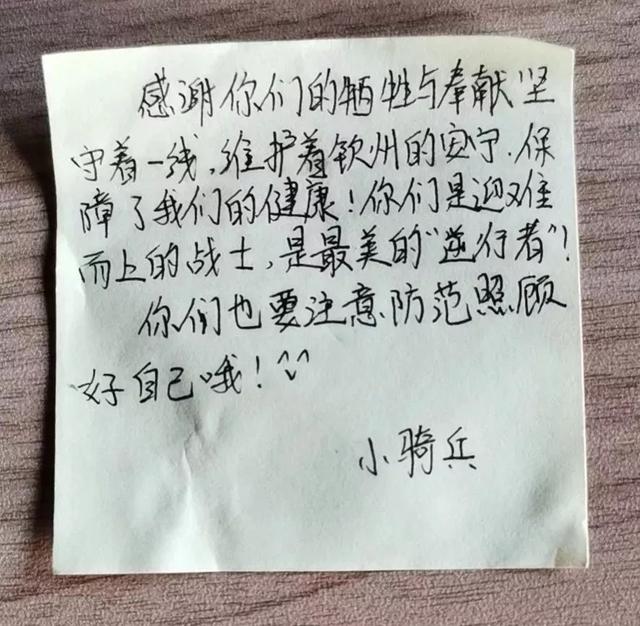 感谢你们的牺牲与奉献坚
守着一线,维护着钦州的安宁.保
障了我们的健康!你们是迎难
而上的战士,是最美的“逆行者”!
你们也要注意防范照顾
好自己哦!^^
小骑兵